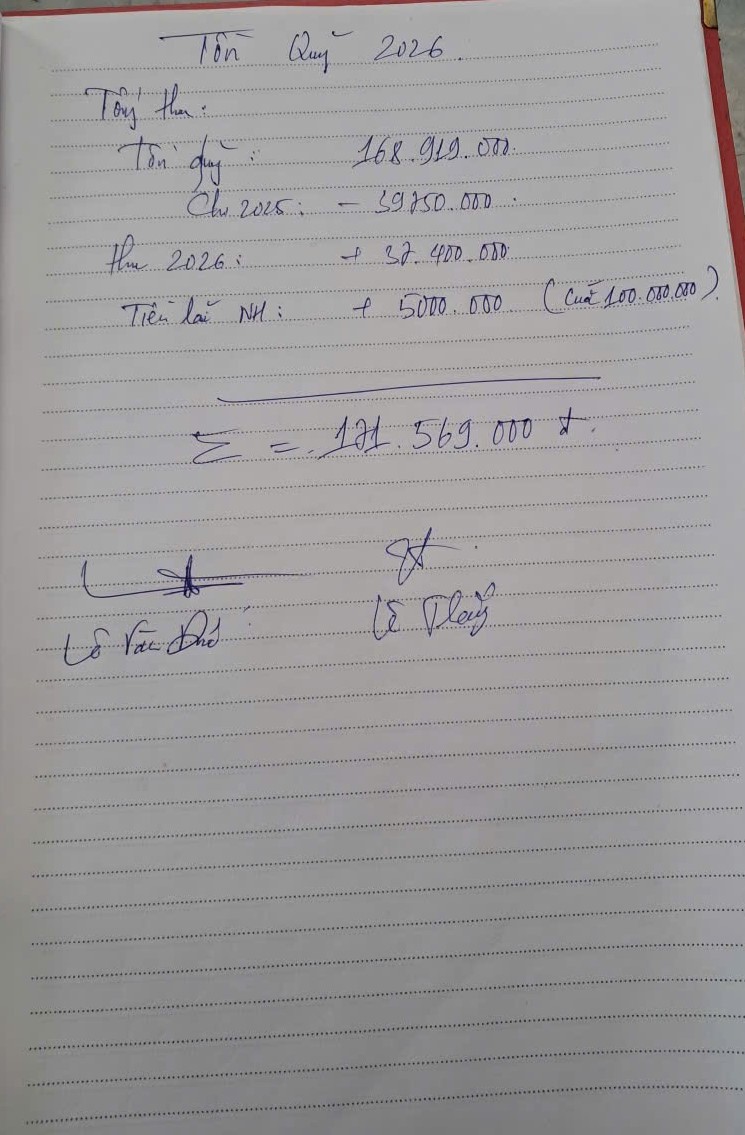 Tồn Quỹ 2026.
Tổng thu:
Tồn quỹ: 168.919.000
Chi 2025: - 39750.000
thu 2026: + 37.400.000
Tiền lãi NH: + 5000.000 (Của 100.000.000).
Σ = 171.569.000 đ.
Lê Văn
Lê